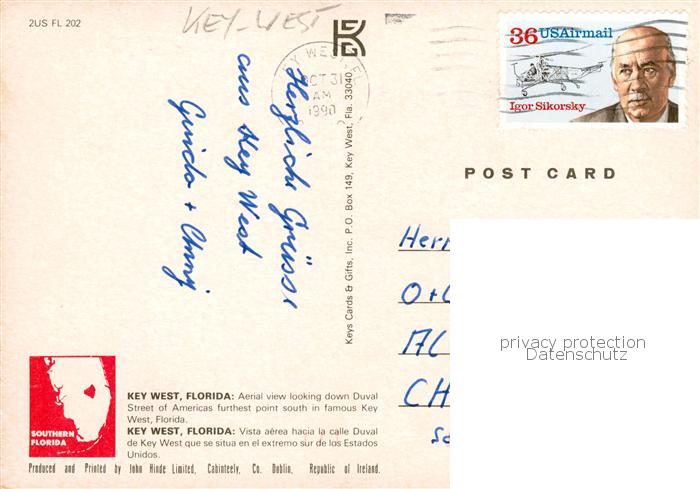 2US FL 202
KEY-WEST
36 USAirmail
Igor Sikorsky
KEY WEST, FL
OCT 31
AM
1990
Herzliche Grüsse
aus Key West
Guido +
Keys Cards & Gifts, Inc. P.O. Box 149, Key West, Fla. 33040
POST CARD
Herr
O+
AL
CH
privacy protection
Datenschutz
SOUTHERN
FLORIDA
KEY WEST, FLORIDA: Aerial view looking down Duval
Street of Americas furthest point south in famous Key
West, Florida.
KEY WEST, FLORIDA: Vista aérea hacia la calle Duval
de Key West que se situa en el extremo sur de los Estados
Unidos.
Produced and Printed by John Hinde Limited, Cabinteely, Co. Dublin, Republic of Ireland.